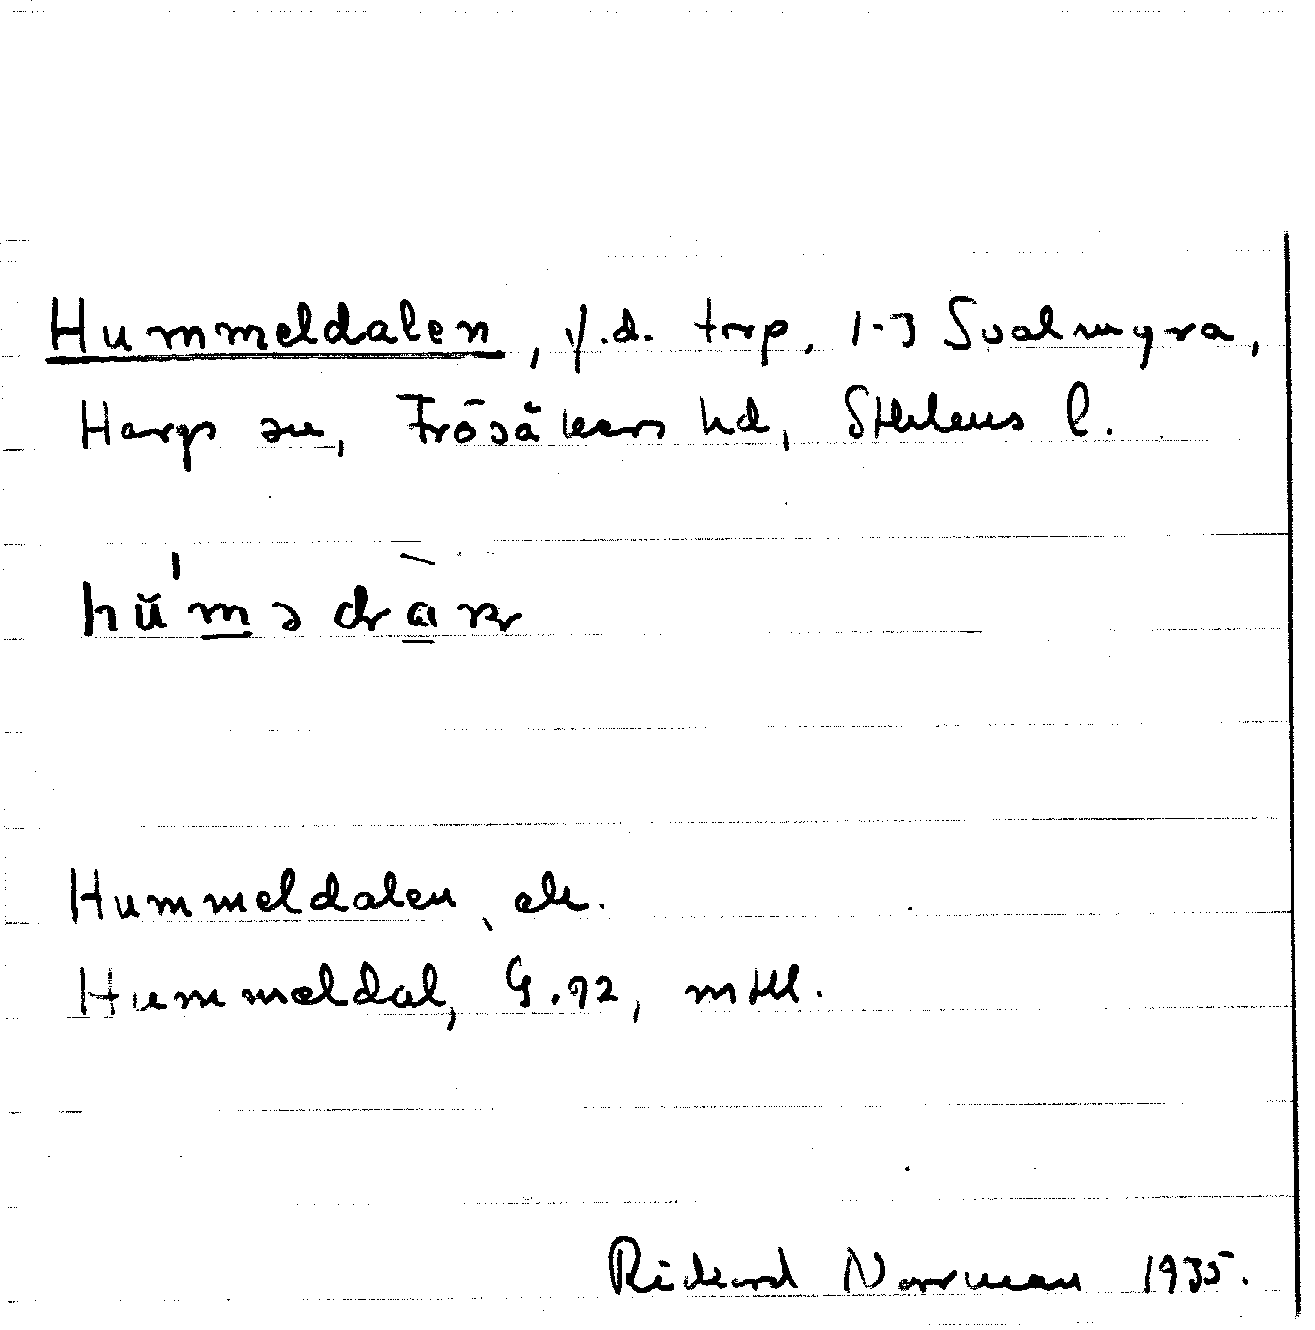 Hummeldalen, f.d. torp, 1-3 Svalmyra,
Hargs sn, Frösåkers hd, Sthlms l.
Hummeldalen, ek.
Hummeldal, G.92, mtll.
Rickard Norrman 1935.